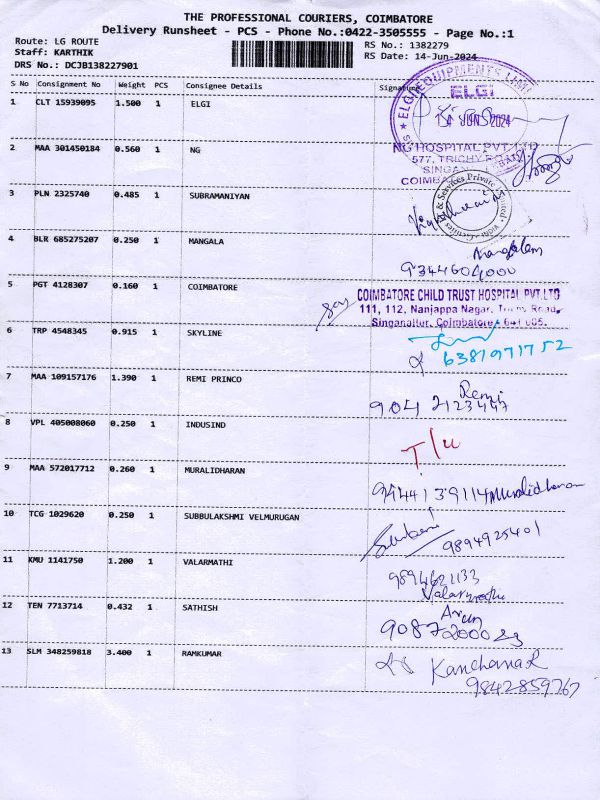 THE PROFESSIONAL COURIERS, COIMBATORE
Delivery Runsheet - PCS - Phone No.:0422-3505555 - Page No.:1
Route: LG ROUTE
RS No.: 1382279
Staff: KARTHIK
RS Date: 14-Jun-2024
DRS No.: DCJB138227901
S No Consignment No Weight PCS Consignee Details Signature
1 CLT 15939095 1.500 1 ELGI
ELGI EQUIPMENTS LIMI
ELGI
14 JUN 2024
2 MAA 301450184 0.560 1 NG
NG HOSPITAL PVT LTD
577, TRICHY RO
SINGAN
COIMBA
3 PLN 2325740 0.485 1 SUBRAMANIYAN
& Services Private
4 BLR 685275207 0.250 1 MANGALA
Mangalam
9344604000
5 PGT 4128307 0.160 1 COIMBATORE
COIMBATORE CHILD TRUST HOSPITAL PVT.LTD
111, 112, Nanjappa Nagar, Trichy Road,
Singanallur, Coimbatore - 641 005.
6 TRP 4548345 0.915 1 SKYLINE
6381971752
7 MAA 109157176 1.390 1 REMI PRINCO
Remi
9042123447
8 VPL 405008060 0.250 1 INDUSIND
T/u
9 MAA 572017712 0.260 1 MURALIDHARAN
9444139114 Muralidharan
10 TCG 1029620 0.250 1 SUBBULAKSHMI VELMURUGAN
9894925401
11 KMU 1141750 1.200 1 VALARMATHI
9894621133
Valarmathi
12 TEN 7713714 0.432 1 SATHISH
Arun
13 SLM 348259818 3.400 1 RAMKUMAR
Kanchana R
9842859767